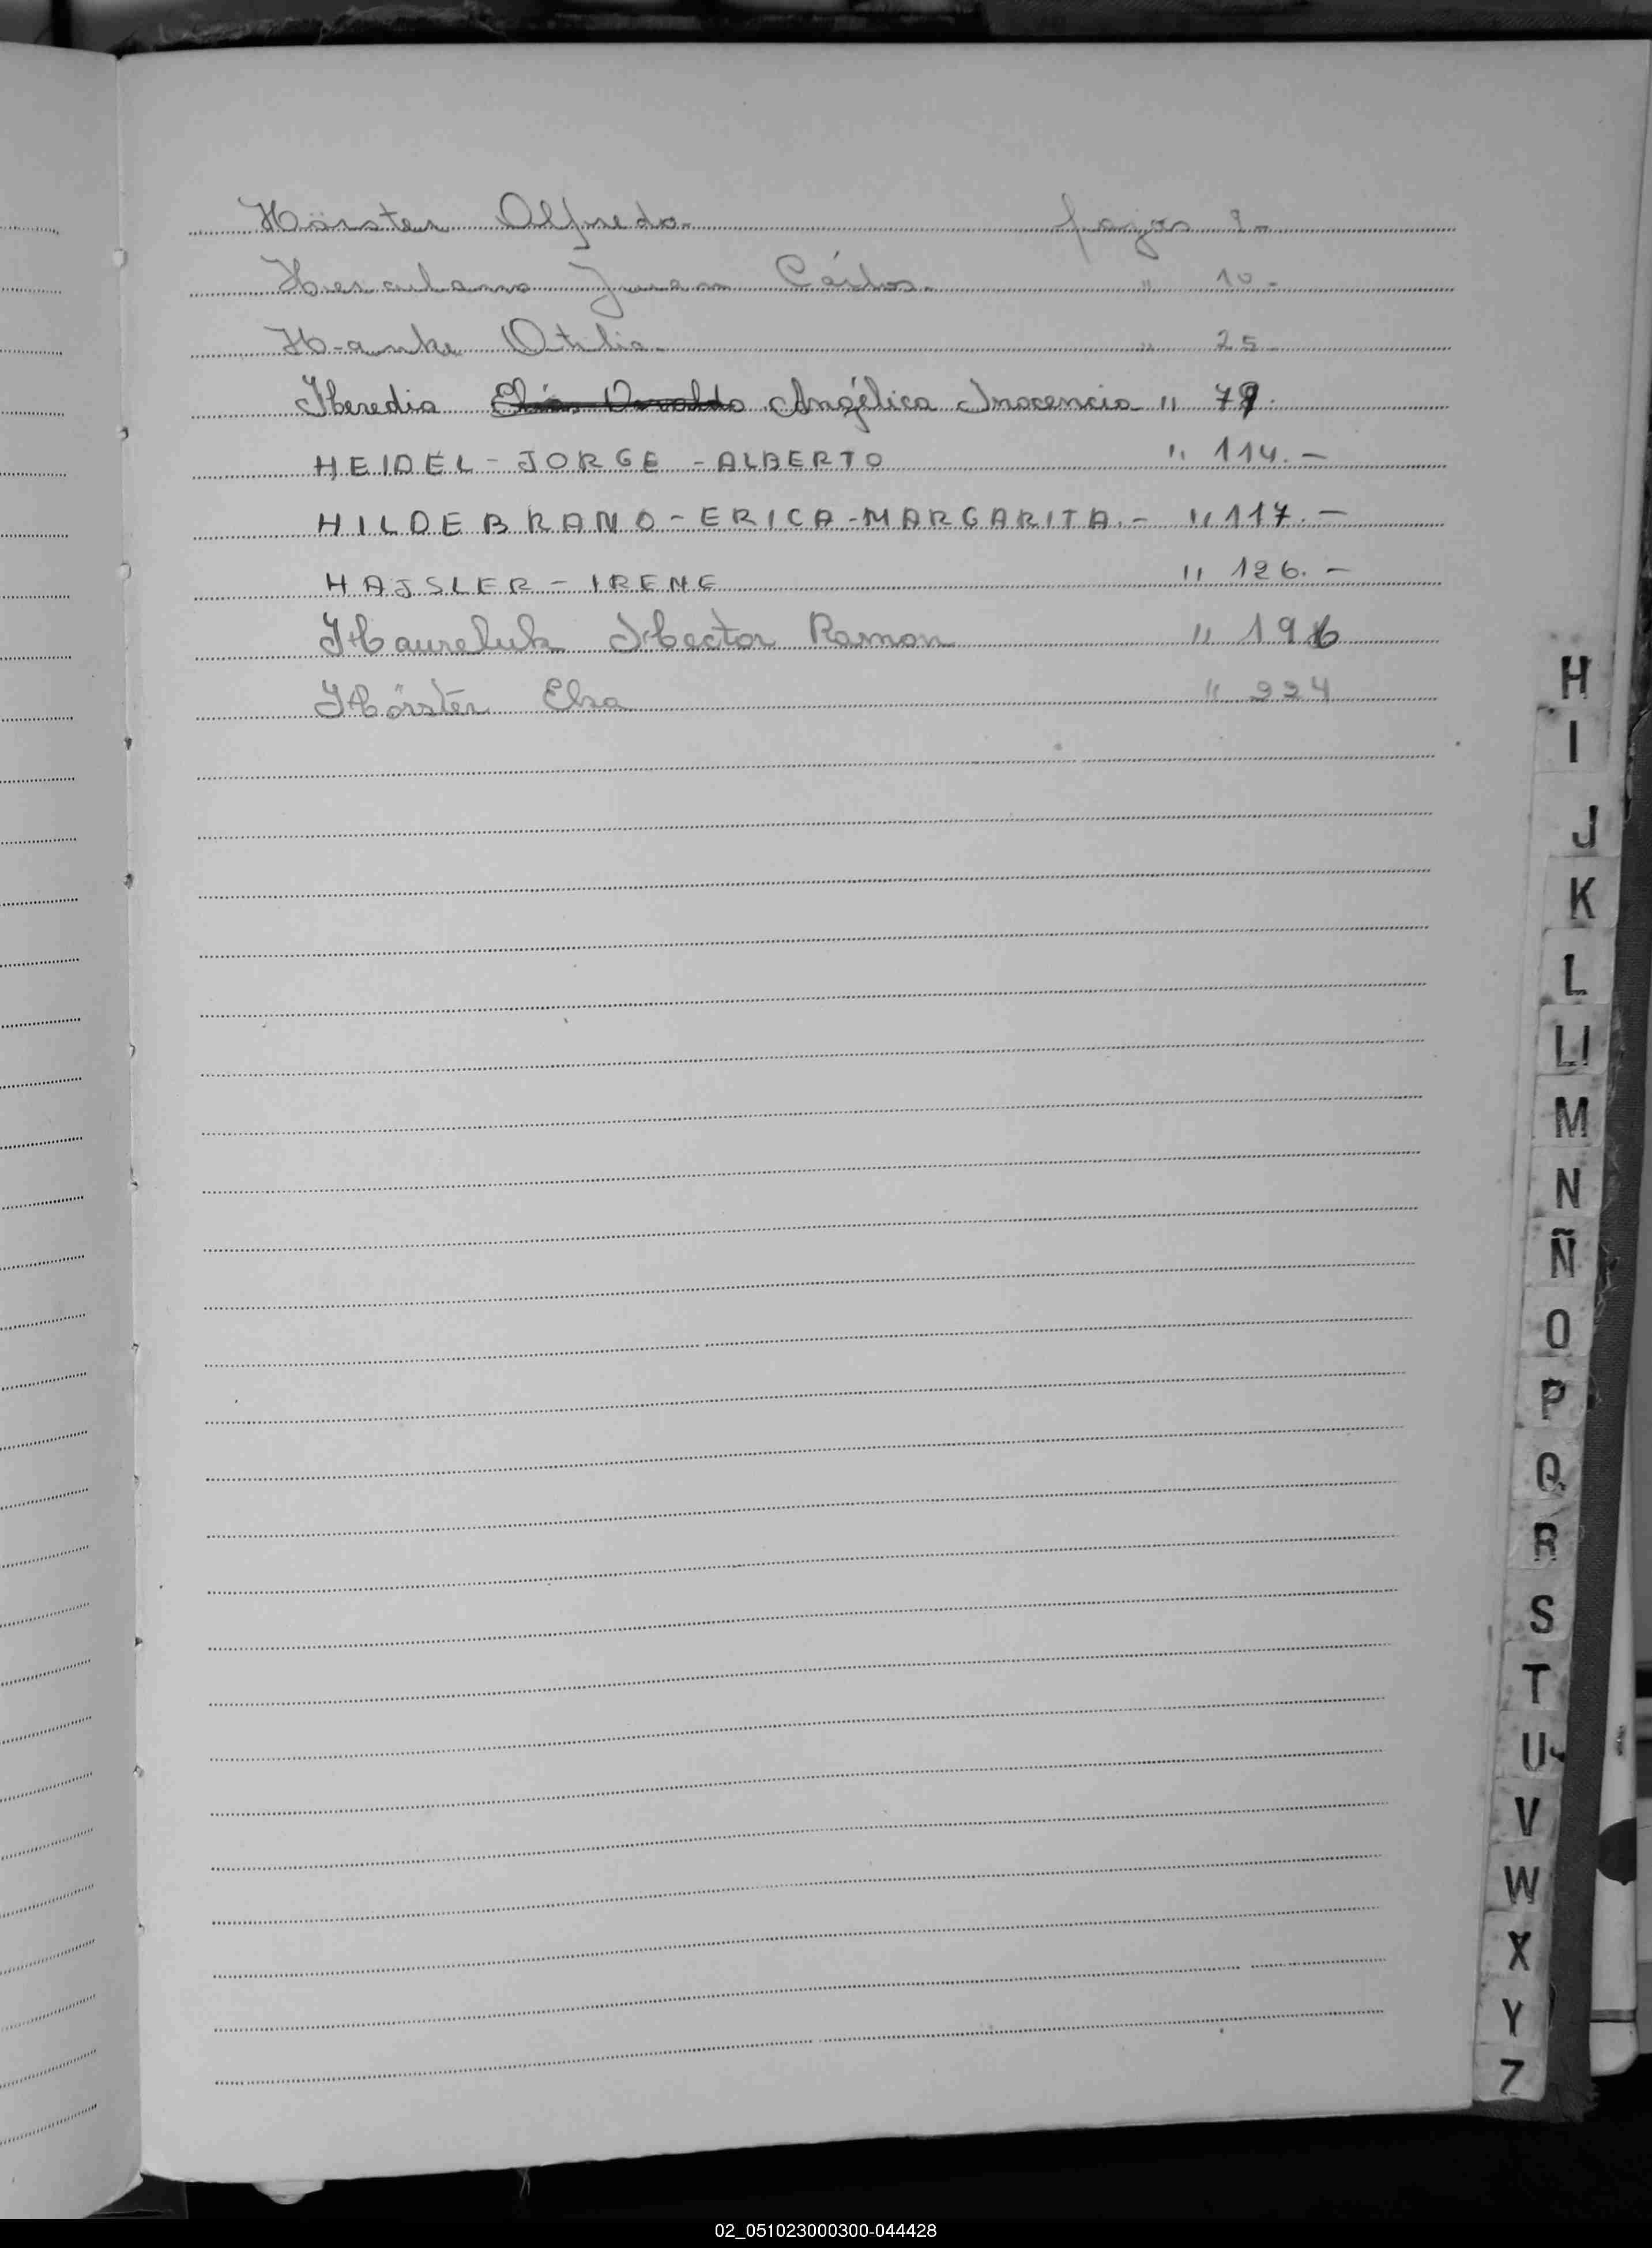 Hörster Alfredo. fojas 9-
Herculano Juan Carlos. " 10.-
Hanke Otilia. " 25-
Heredia Elías Osvaldo Angélica Inocencia " 79.
HEIDEL-JORGE-ALBERTO " 114.-
HILDEBRAND-ERICA-MARGARITA.- " 117.-
HAJSLER-IRENE " 126.-
Haureluk Hector Ramon " 196
Hörster Elsa " 224
H
I
J
K
L
Ll
M
N
Ñ
O
P
Q
R
S
T
U
V
W
X
Y
Z
02_051023000300-044428